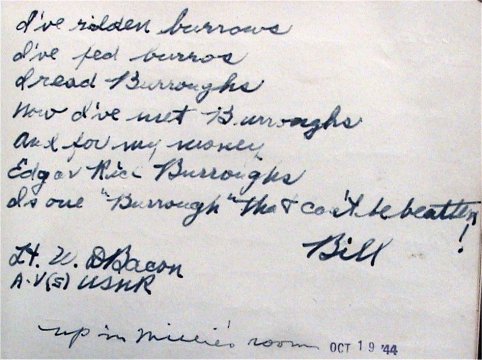 I've ridden burrows
I've fed burros
I read Burroughs
Now I've met Burroughs
And for my money
Edgar Rice Burroughs
Is one "Burrough" that can't be beatten!
Bill
Lt. W. D Bacon
A-V(S) USNR
up in Millie's room OCT 19 '44